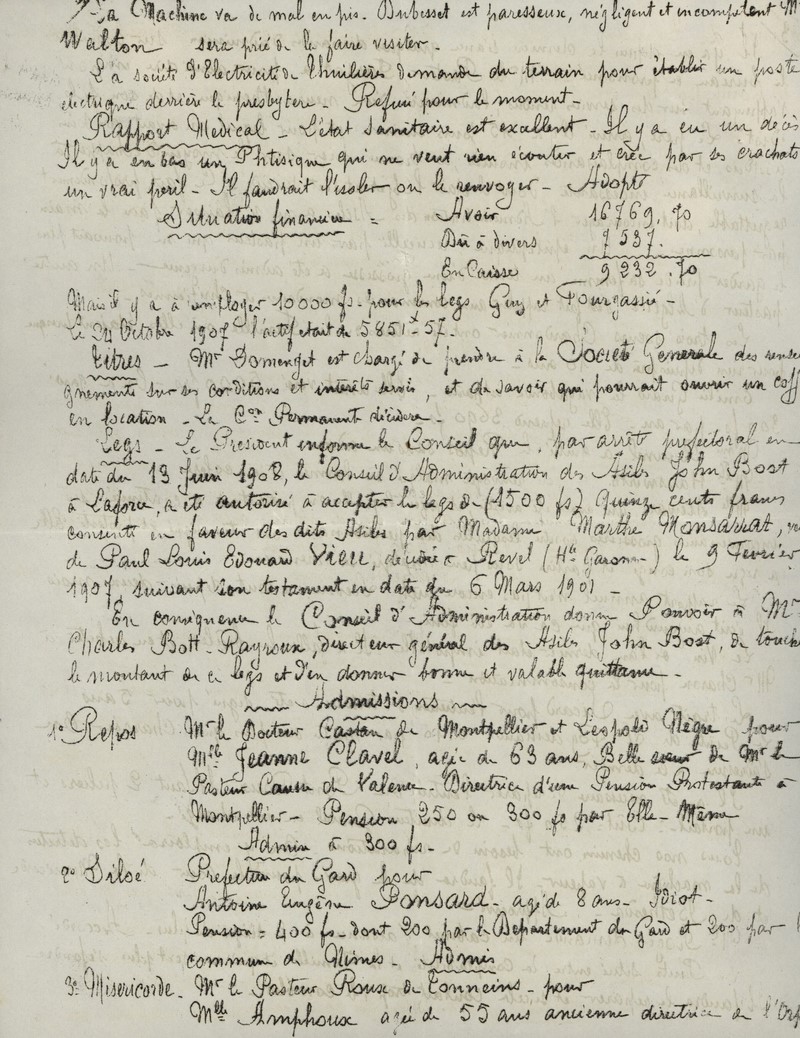 7º La Machine va de mal en pis. Dubesset est paresseux, négligent et incompétent Mr
Walton sera prié de la faire visiter.
La société d'Electricité de Thuilières demande du terrain pour établir un poste
électrique derrière le presbytère - Refusé pour le moment -
Rapport Medical - L'état sanitaire est excellent - Il y a eu un décès
Il y a en bas un Phtisique qui ne veut rien écouter et crée par ses crachats
un vrai péril - Il faudrait l'isoler ou le renvoyer - Adopté
Situation financière = Avoir 16769,70
Dû à divers 7537.
En Caisse 9232.70
Mais il y a à employer 10000 fs. pour les legs Guy et Fourgassié -
Le 24 Octobre 1907 l'actif était de 5851 f 57.
Titres - Mr Domenget est chargé de prendre à la Société Generale des rensei
gnements sur ses conditions et intérêts servis, et de savoir qui pourrait ouvrir un coff
en location - La Con Permanent décidera -
Legs - Le President informe le Conseil que, par arrêté préfectoral en
date du 13 Juin 1908, le Conseil d'Administration des Asiles John Bost
à Laforce, a été autorisé à accepter le legs de (1500 fs) quinze cents francs
consenti en faveur des dits Asiles par Madame Marthe Monsarrat, ve
de Paul Louis Edouard Vieu, décédée à Revel (Hte Garonne) le 9 Fevrier
1907, suivant son testament en date du 6 Mars 1901 -
En conséquence le Conseil d'Administration donne Pouvoir à Mr
Charles Bott-Rayroux, directeur général des Asiles John Bost, de touche
le montant de ce legs et d'en donner bonne et valable quittance -
Admissions
1º Repos Mr le Docteur Castan de Montpellier et Léopold Nègre pour
Melle Jeanne Clavel, agée de 63 ans, Belle soeur de Mr le
Pasteur Causse de Valence - Directrice d'une Pension Protestante à
Montpellier - Pension 250 ou 300 fs par Elle-Même
Admise à 300 fs -
2º Siloé Prefecture du Gard pour
Antoine Eugène Ponsard - agé de 8 ans - Idiot -
Pension = 400 fs - dont 200 par le Departement du Gard et 200 par l
commune de Nimes - Admis
3º Misericorde - Mr le Pasteur Roux de Tonneins - pour
Melle Amphoux agée de 55 ans ancienne directrice de l'Orp